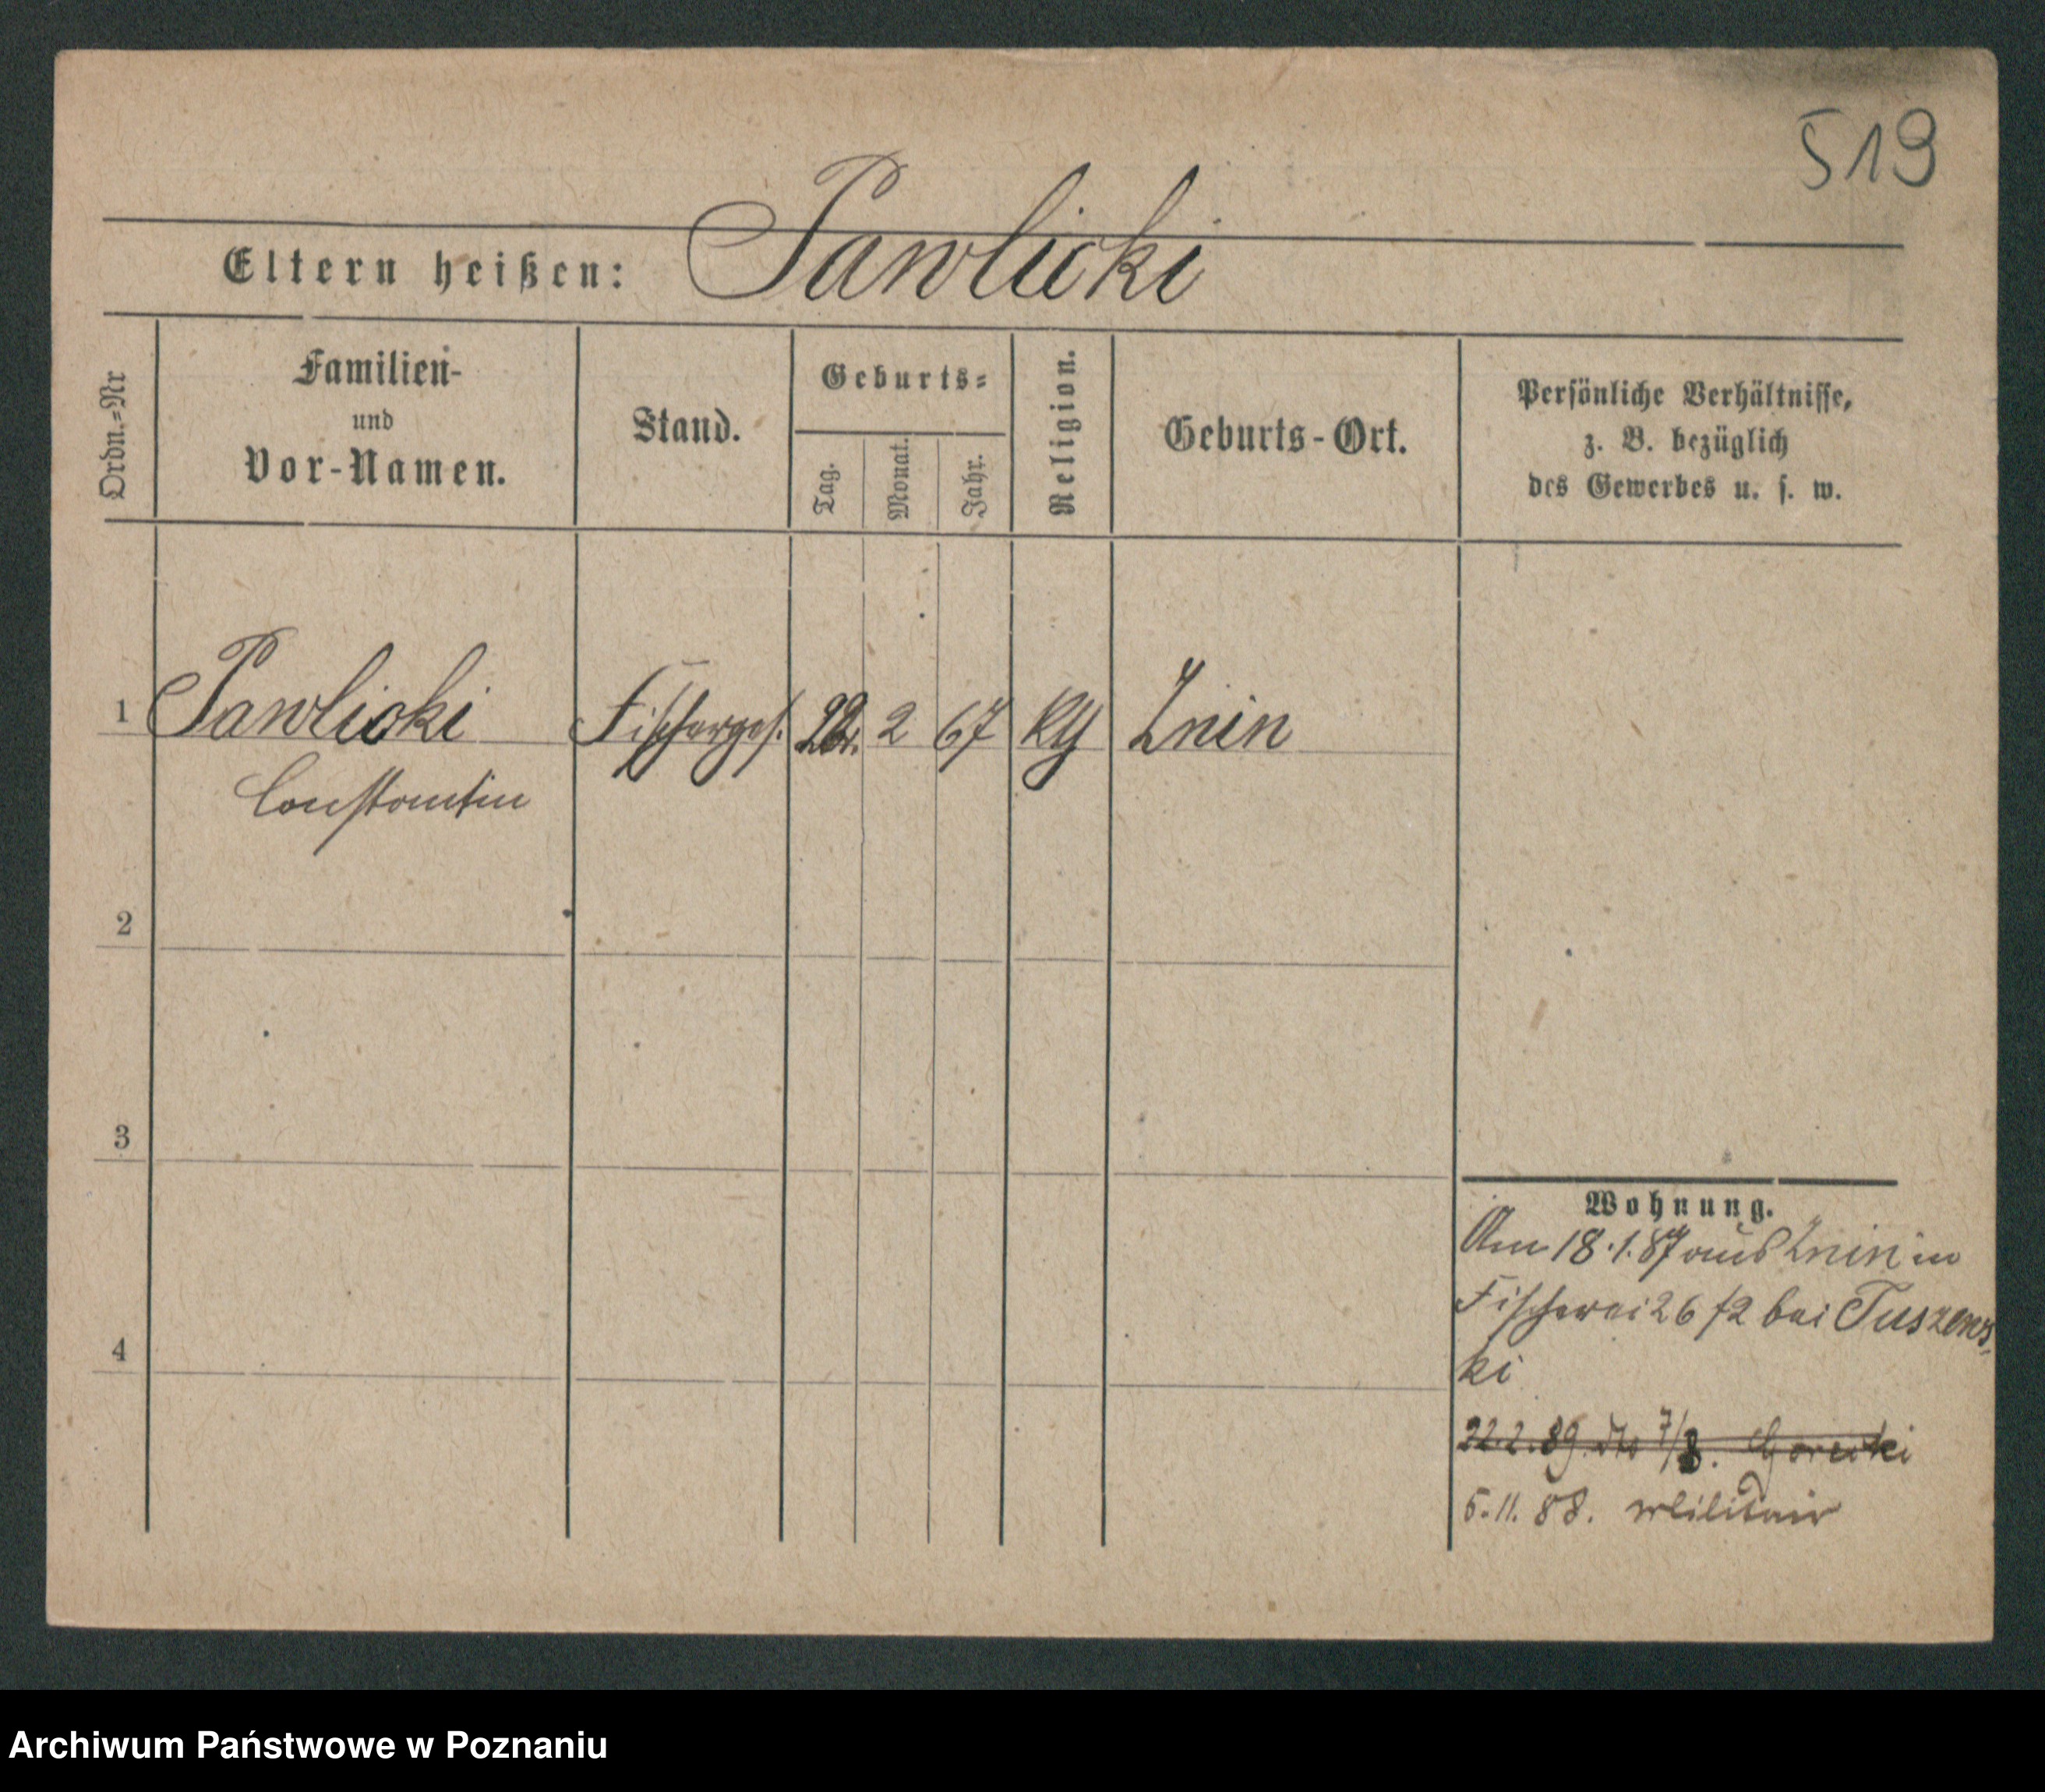 519
Eltern heißen: Pawlicki
Ordn.=Nr
Familien-
und
Vor-Namen.
Stand.
Geburts=
Tag.
Monat.
Jahr.
Religion.
Geburts-Ort.
Persönliche Verhältnisse,
z. B. bezüglich
des Gewerbes u. s. w.
1 Pawlicki Fischerges. 2 67 Znin
Constantin
2
3
4
Wohnung.
Am 18.1.87 aus Znin in
Fischerei 26 bei Tuszews
ki
22.2.89. dto 7/8. Gorecki
5.11.88. Militair
Archiwum Państwowe w Poznaniu